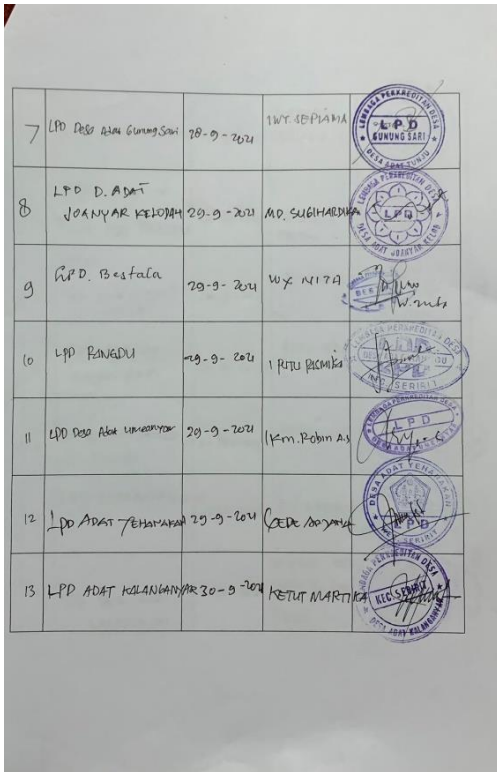 7 LPD Desa Adat Gunung Sari 28-9-2021 IWY. SEPIAMA
LEMBAGA PERKREDITAN DESA
LPD
GUNUNG SARI
DESA ADAT
8 LPD D. ADAT
JOANYAR KELODAN 29-9-2021 MD. SUGIHARDIKA
LEMBAGA PERKREDITAN DESA
LPD
DESA ADAT JOANYAR KELOD
9 LPD. Bestala 29-9-2021 WY NITA
10 LPD PANGDU 29-9-2021 I PUTU PASMIKA
LEMBAGA PERKREDITAN DESA
KEC. SERIRIT
11 LPD Desa Adat Umeanyar 29-9-2021 Km. Robin A.S
LEMBAGA PERKREDITAN DESA
LPD
12 LPD ADAT YEHANAKAN 29-9-2021 GEDE
DESA ADAT YEHANAKAN
LPD
SERIRIT
13 LPD ADAT KALANGANYAR 30-9-2021 KETUT MARTIKA
LEMBAGA PERKREDITAN DESA
KEC. SERIRIT
DESA ADAT KALANGANYAR